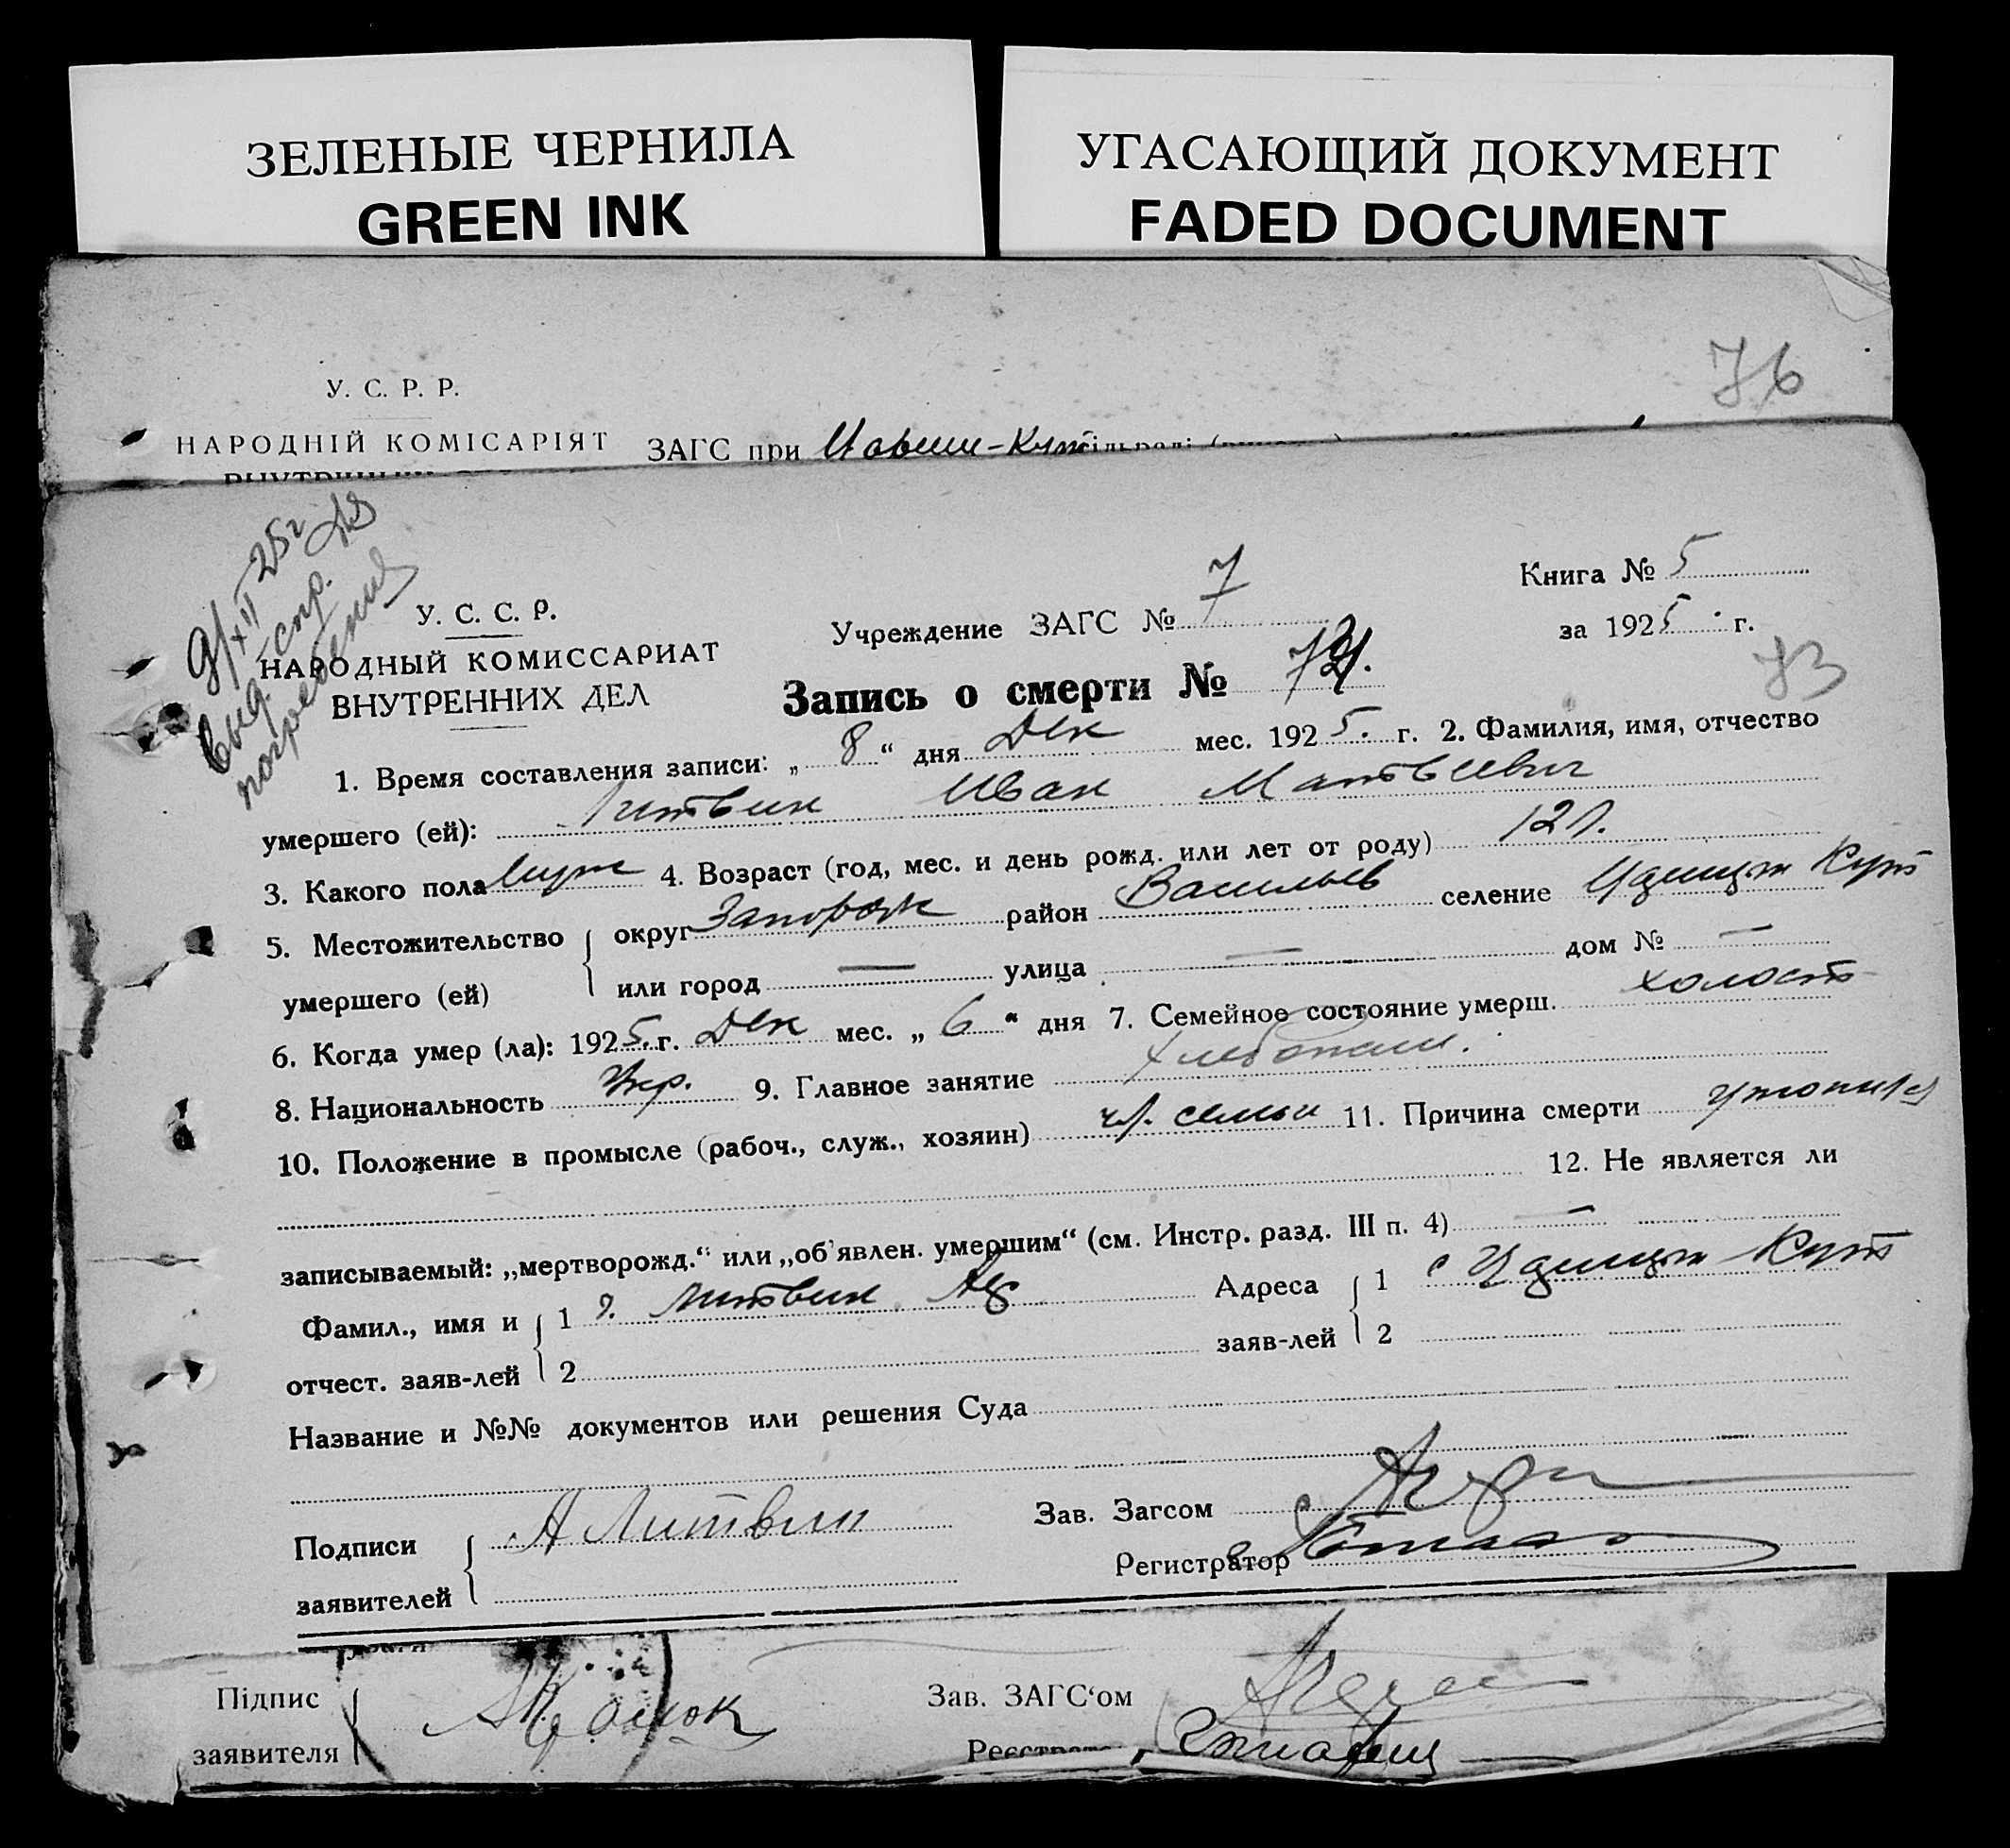 ЗЕЛЕНЫЕ ЧЕРНИЛА
GREEN INK
УГАСАЮЩИЙ ДОКУМЕНТ
FADED DOCUMENT
76
У. С. Р. Р.
НАРОДНІЙ КОМІСАРІЯТ ЗАГС при
9/XII 25г
выд. спр.
погребение
Книга № 5
У. С. С. Р. Учреждение ЗАГС № 7
за 1925 г.
НАРОДНЫЙ КОМИССАРИАТ
ВНУТРЕННИХ ДЕЛ
Запись о смерти №
73
1. Время составления записи: „ 8 “ дня Дек мес. 1925. г. 2. Фамилия, имя, отчество
умершего (ей): Литвин Иван Матвеевич
3. Какого пола муж 4. Возраст (год, мес. и день рожд. или лет от роду) 12 л.
5. Местожительство округ Запорож район Васильев селение Царицын Кут
умершего (ей) или город — улица — дом № —
6. Когда умер (ла): 1925. г. Дек мес. „ 6 “ дня 7. Семейное состояние умерш. холост
8. Национальность Укр. 9. Главное занятие хлебопаш.
10. Положение в промысле (рабоч., служ., хозяин) чл. семьи 11. Причина смерти утопился
12. Не является ли
записываемый: „мертворожд.“ или „об'явлен. умершим“ (см. Инстр. разд. III п. 4) —
Фамил., имя и 1 Литвин Адреса 1 с Царицын Кут
отчест. заяв-лей 2 заяв-лей 2
Название и №№ документов или решения Суда
Подписи А Литвин Зав. Загсом
заявителей Регистратор
Підпис Зав. ЗАГС‘ом
заявителя